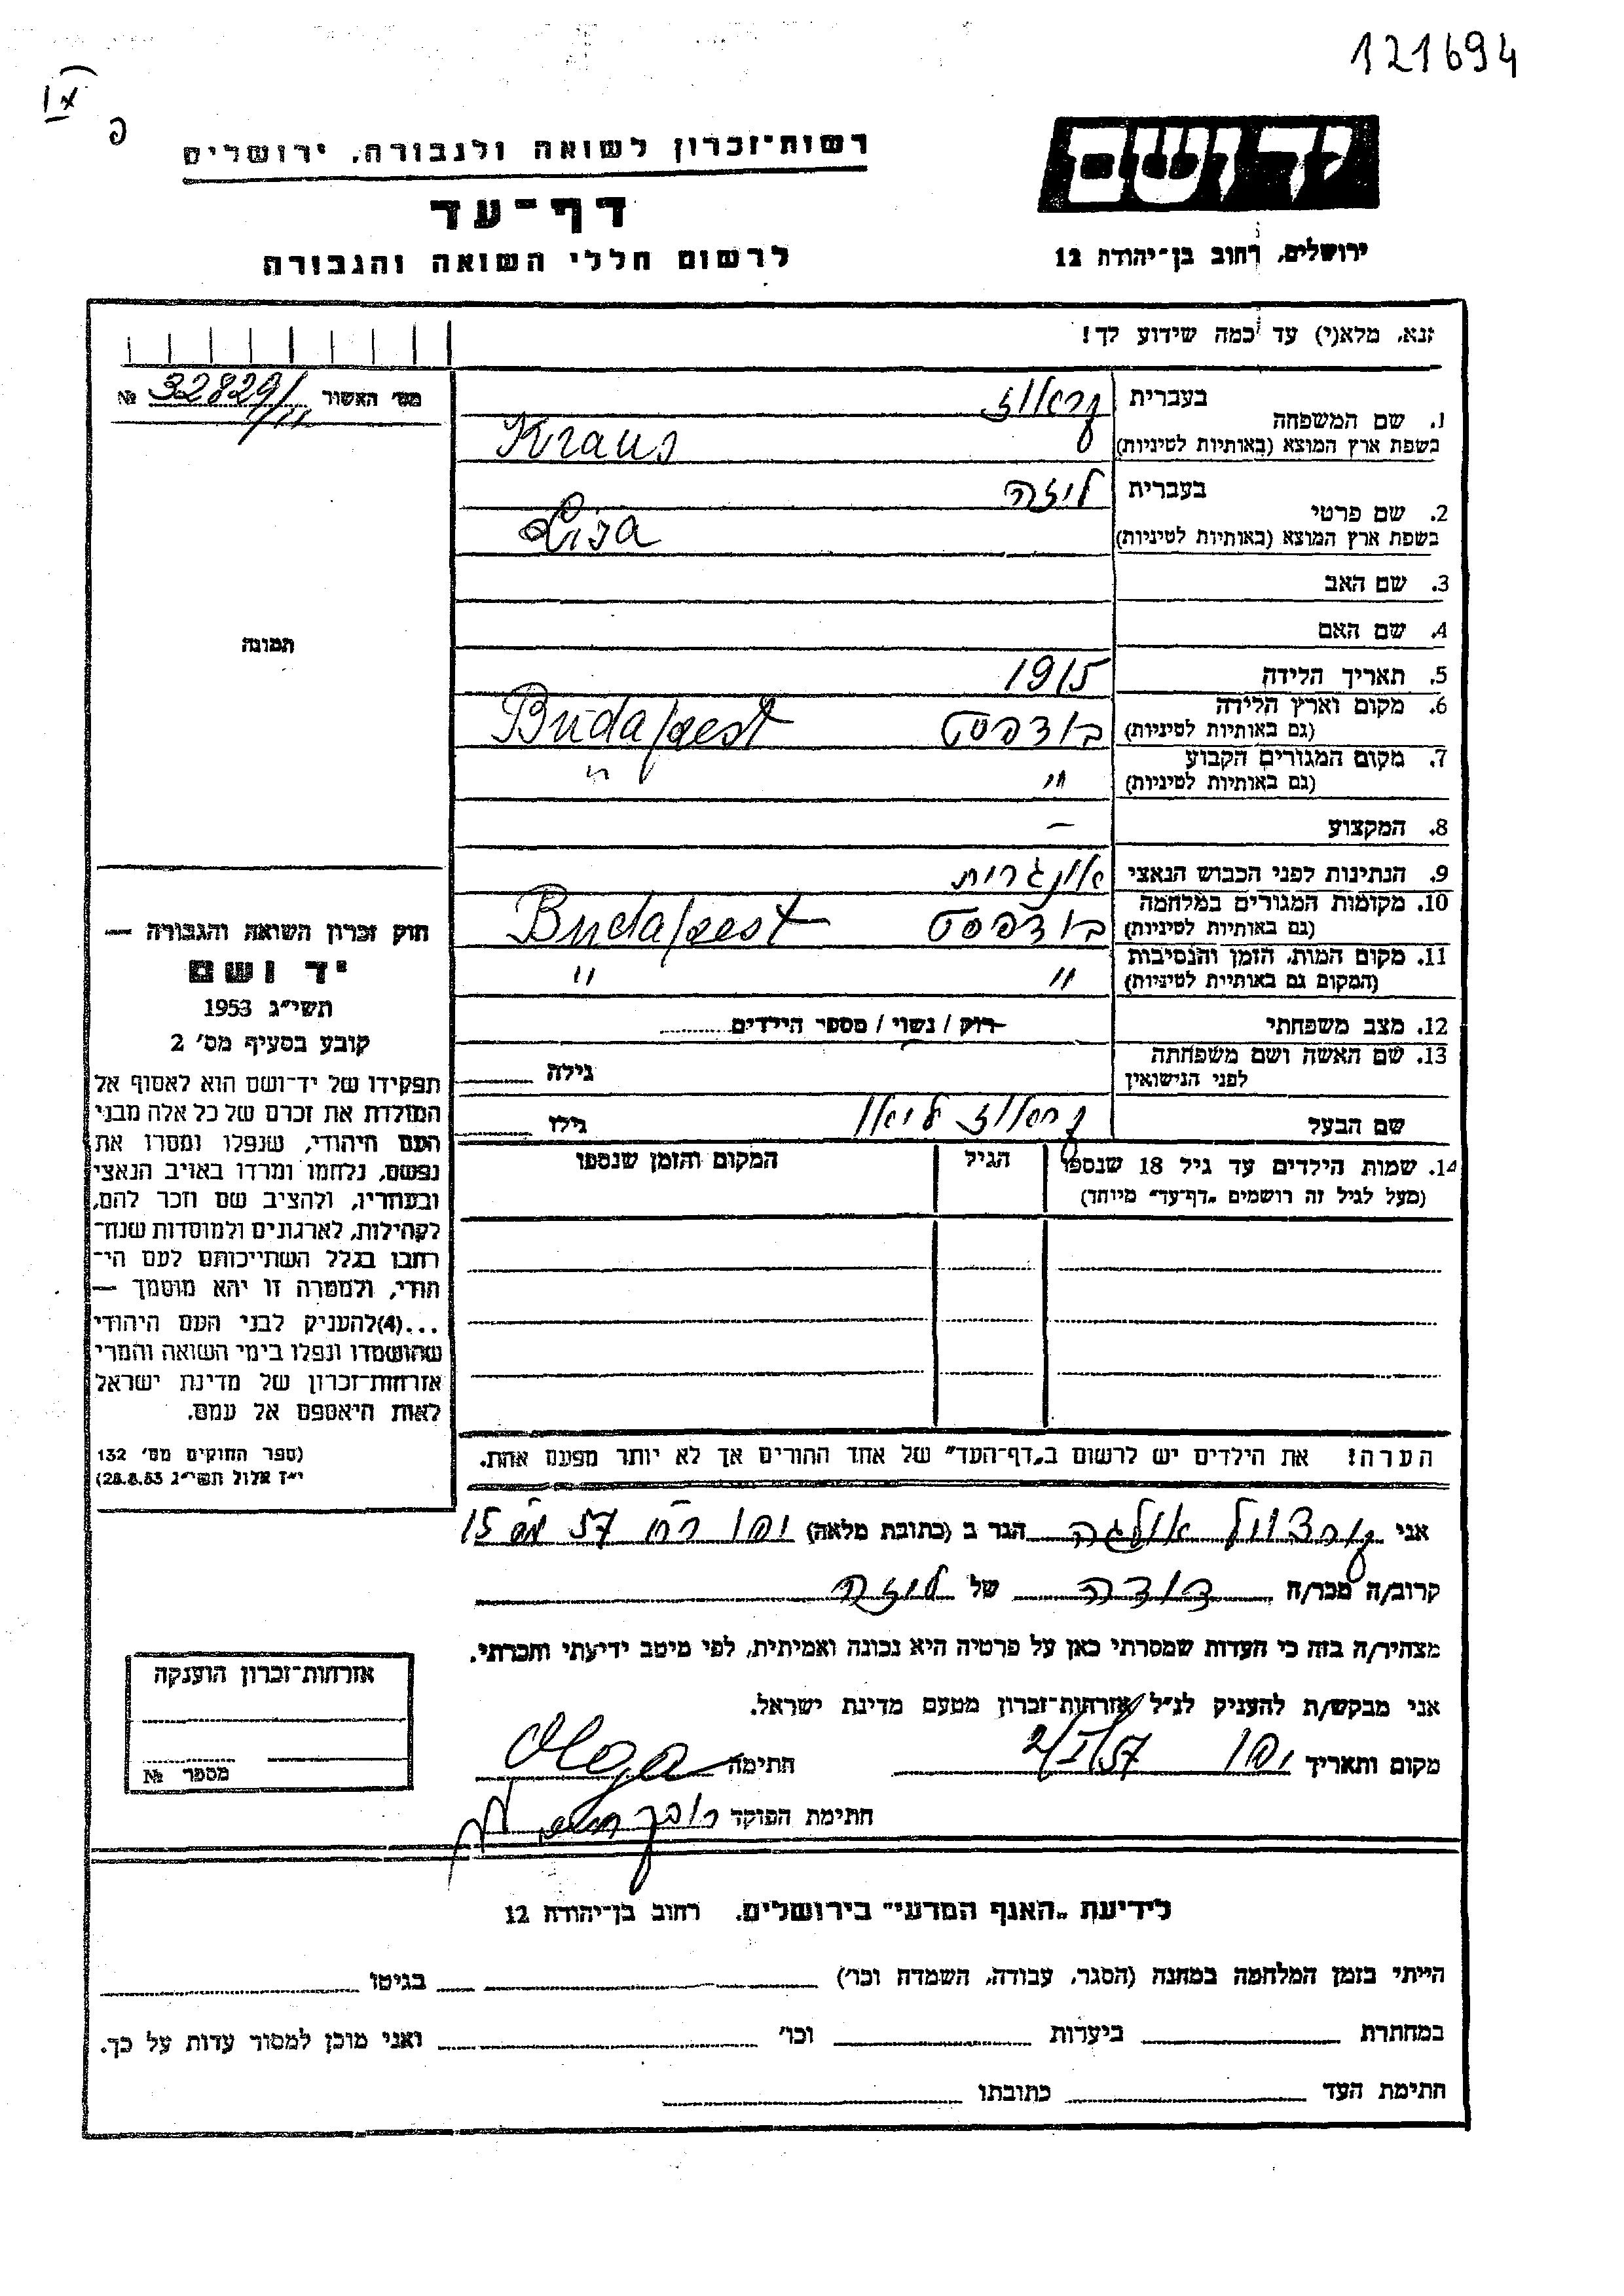 121694
רשות־זכרון לשואה ולגבורה, ירושלים
יד ושם
דף־עד
ירושלים, רחוב בן־יהודה 12
לרשום חללי השואה והגבורה
נא, מלא(י) עד כמה שידוע לך!
מס׳ האשור 32829/ №
1. שם המשפחה
בעברית קראוז
בשפת ארץ המוצא (באותיות לטיניות) Kraus
2. שם פרטי
בעברית ליזה
בשפת ארץ המוצא (באותיות לטיניות) Lisa
3. שם האב
4. שם האם
תמונה
5. תאריך הלידה 1915
6. מקום וארץ הלידה
(גם באותיות לטיניות) בודפסט Budapest
7. מקום המגורים הקבוע
(גם באותיות לטיניות) " "
8. המקצוע —
9. הנתינות לפני הכבוש הנאצי אונגרית
10. מקומות המגורים במלחמה
(גם באותיות לטיניות) בודפסט Budapest
11. מקום המות, הזמן והנסיבות
(המקום גם באותיות לטיניות) " "
12. מצב משפחתי רוק / נשוי / מספר הילדים
13. שם האשה ושם משפחתה
לפני הנישואין גילה
שם הבעל קראוז גילו
14. שמות הילדים עד גיל 18 שנספו הגיל המקום והזמן שנספו
(מעל לגיל זה רושמים „דף־עד״ מיוחד)
חוק זכרון השואה והגבורה —
יד ושם
תשי״ג 1953
קובע בסעיף מס׳ 2
תפקידו של יד־ושם הוא לאסוף אל
המולדת את זכרם של כל אלה מבני
העם היהודי, שנפלו ומסרו את
נפשם, נלחמו ומרדו באויב הנאצי
ובעוזריו, ולהציב שם וזכר להם,
לקהילות, לארגונים ולמוסדות שנח־
רבו בגלל השתייכותם לעם הי־
הודי, ולמטרה זו יהא מוסמך —
...(4)להעניק לבני העם היהודי
שהושמדו ונפלו בימי השואה והמרי
אזרחות־זכרון של מדינת ישראל
לאות היאספם אל עמם.
(ספר החוקים מס׳ 132
י״ז אלול תשי״ג 28.8.53)
הערה! את הילדים יש לרשום ב„דף־העד״ של אחד ההורים אך לא יותר מפעם אחת.
אני אולגה הגר ב (כתובת מלאה) יפו רח 57 מס 15
קרוב/ה מכר/ה דודה של ליזה
מצהיר/ה בזה כי העדות שמסרתי כאן על פרטיה היא נכונה ואמיתית, לפי מיטב ידיעתי והכרתי.
אני מבקש/ת להעניק לנ״ל אזרחות־זכרון מטעם מדינת ישראל.
מקום ותאריך יפו 2/I/57 חתימה Olga
חתימת הפוקד
אזרחות־זכרון הוענקה
מספר №
לידיעת „האגף המדעי״ בירושלים, רחוב בן־יהודה 12
הייתי בזמן המלחמה במחנה (הסגר, עבודה, השמדה וכו׳) בגיטו
במחתרת ביערות וכו׳ ואני מוכן למסור עדות על כך.
חתימת העד כתובתו